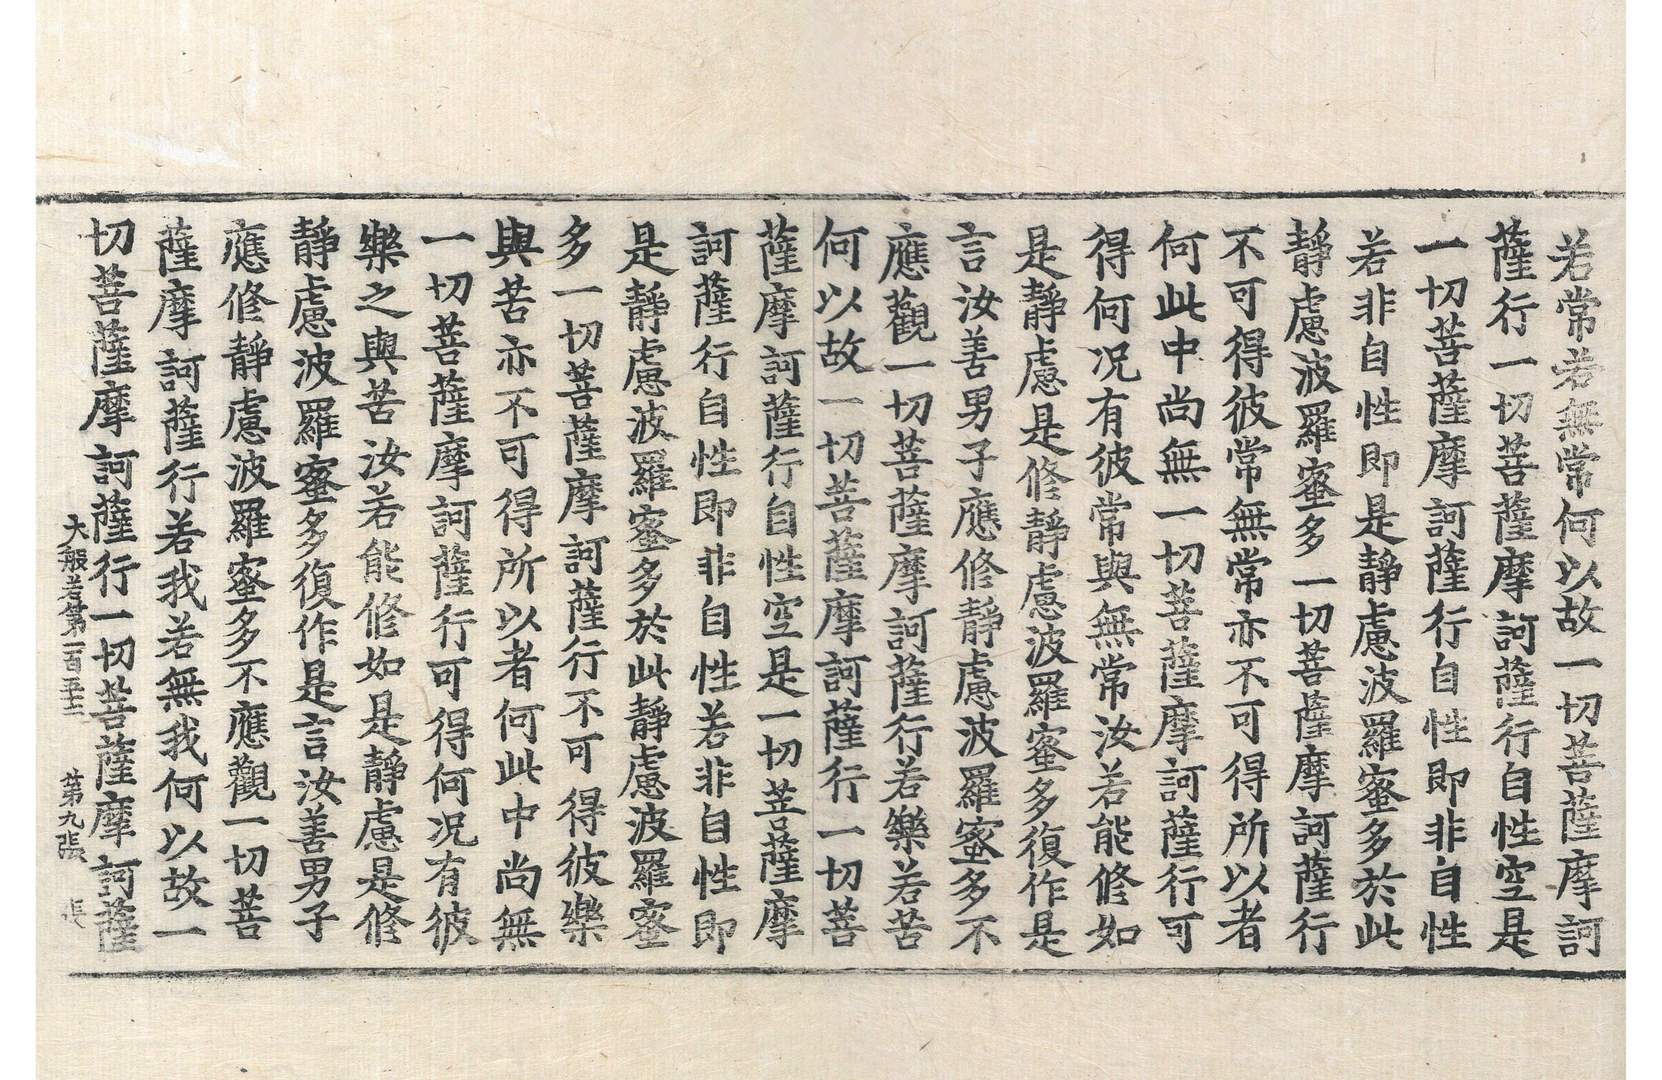 若常若無常何以故一切菩薩摩訶
薩行一切菩薩摩訶薩行自性空是
一切菩薩摩訶薩行自性即非自性
若非自性即是靜慮波羅蜜多於此
靜慮波羅蜜多一切菩薩摩訶薩行
不可得彼常無常亦不可得所以者
何此中尚無一切菩薩摩訶薩行可
得何况有彼常與無常汝若能修如
是靜慮是修靜慮波羅蜜多復作是
言汝善男子應修靜慮波羅蜜多不
應觀一切菩薩摩訶薩行若樂若苦
何以故一切菩薩摩訶薩行一切菩
薩摩訶薩行自性空是一切菩薩摩
訶薩行自性即非自性若非自性即
是靜慮波羅蜜多於此靜慮波羅蜜
多一切菩薩摩訶薩行不可得彼樂
與苦亦不可得所以者何此中尚無
一切菩薩摩訶薩行可得何况有彼
樂之與苦汝若能修如是靜慮是修
靜慮波羅蜜多復作是言汝善男子
應修靜慮波羅蜜多不應觀一切菩
薩摩訶薩行若我若無我何以故一
切菩薩摩訶薩行一切菩薩摩訶薩
大般若第一百五十二 第九張